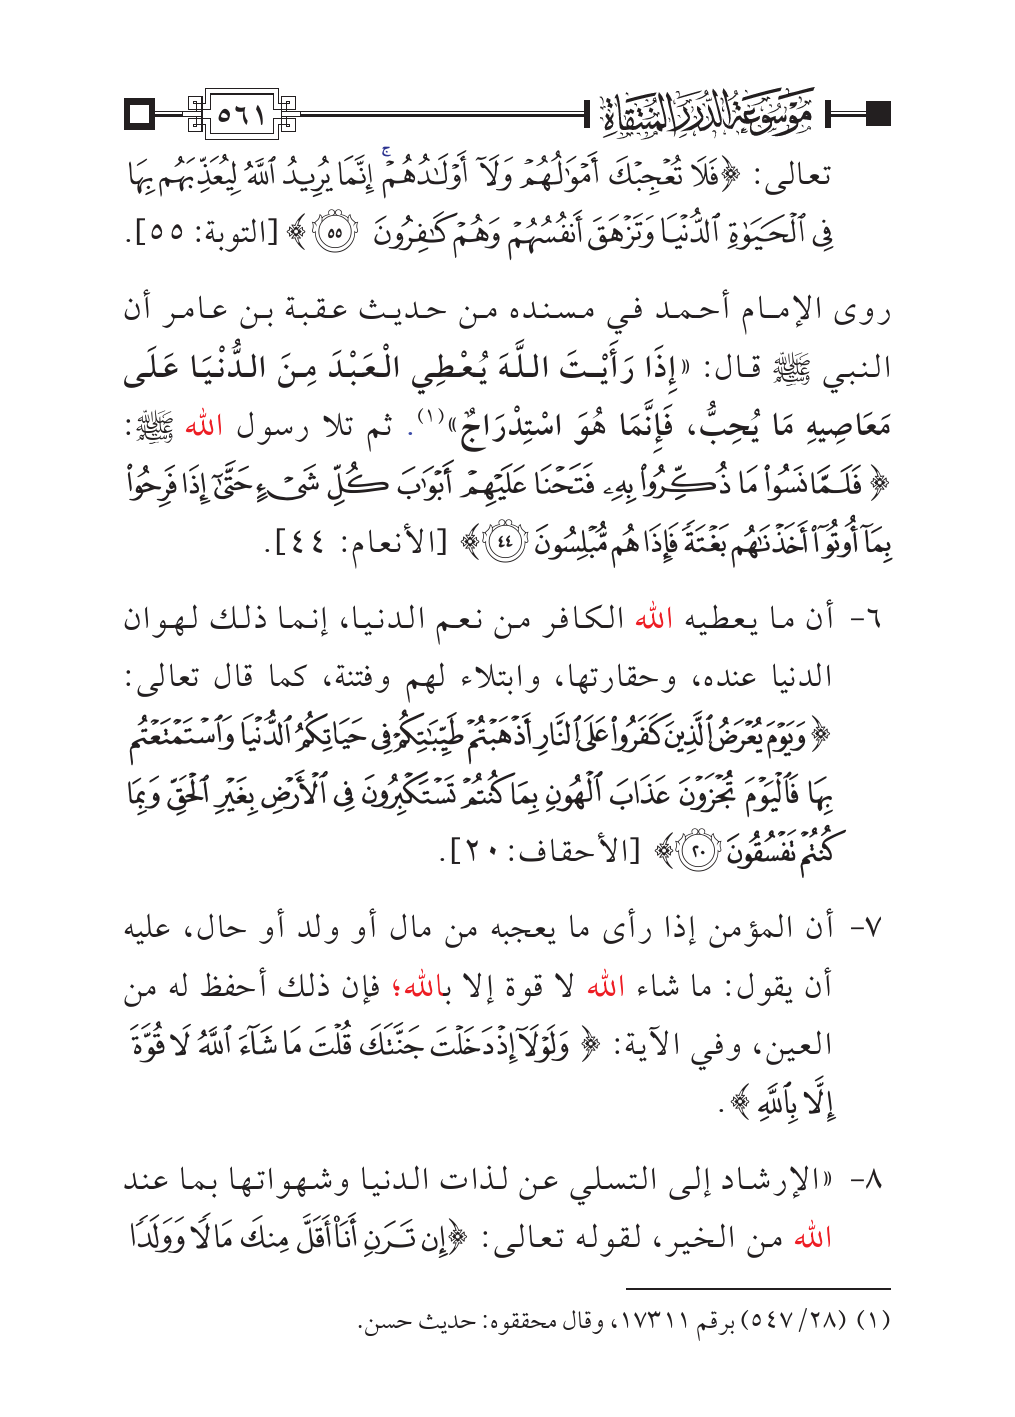 مَوْسُوعَةُ الدُّرَرِ الْمُنْتَقَاةِ
٥٦١
تعالى: ﴿فَلَا تُعْجِبْكَ أَمْوَٰلُهُمْ وَلَآ أَوْلَٰدُهُمْ ۚ إِنَّمَا يُرِيدُ ٱللَّهُ لِيُعَذِّبَهُم بِهَا
فِى ٱلْحَيَوٰةِ ٱلدُّنْيَا وَتَزْهَقَ أَنفُسُهُمْ وَهُمْ كَٰفِرُونَ ٥٥﴾ [التوبة: ٥٥].
روى الإمام أحمد في مسنده من حديث عقبة بن عامر أن
النبي ﷺ قال: «إِذَا رَأَيْتَ اللَّهَ يُعْطِي الْعَبْدَ مِنَ الدُّنْيَا عَلَى
مَعَاصِيهِ مَا يُحِبُّ، فَإِنَّمَا هُوَ اسْتِدْرَاجٌ»(١). ثم تلا رسول الله ﷺ:
﴿فَلَمَّا نَسُوا۟ مَا ذُكِّرُوا۟ بِهِۦ فَتَحْنَا عَلَيْهِمْ أَبْوَٰبَ كُلِّ شَىْءٍ حَتَّىٰٓ إِذَا فَرِحُوا۟
بِمَآ أُوتُوٓا۟ أَخَذْنَٰهُم بَغْتَةً فَإِذَا هُم مُّبْلِسُونَ ٤٤﴾ [الأنعام: ٤٤].
٦- أن ما يعطيه الله الكافر من نعم الدنيا، إنما ذلك لهوان
الدنيا عنده، وحقارتها، وابتلاء لهم وفتنة، كما قال تعالى:
﴿وَيَوْمَ يُعْرَضُ ٱلَّذِينَ كَفَرُوا۟ عَلَى ٱلنَّارِ أَذْهَبْتُمْ طَيِّبَٰتِكُمْ فِى حَيَاتِكُمُ ٱلدُّنْيَا وَٱسْتَمْتَعْتُم
بِهَا فَٱلْيَوْمَ تُجْزَوْنَ عَذَابَ ٱلْهُونِ بِمَا كُنتُمْ تَسْتَكْبِرُونَ فِى ٱلْأَرْضِ بِغَيْرِ ٱلْحَقِّ وَبِمَا
كُنتُمْ تَفْسُقُونَ ٢٠﴾ [الأحقاف: ٢٠].
٧- أن المؤمن إذا رأى ما يعجبه من مال أو ولد أو حال، عليه
أن يقول: ما شاء الله لا قوة إلا بالله؛ فإن ذلك أحفظ له من
العين، وفي الآية: ﴿وَلَوْلَآ إِذْ دَخَلْتَ جَنَّتَكَ قُلْتَ مَا شَآءَ ٱللَّهُ لَا قُوَّةَ
إِلَّا بِٱللَّهِ﴾.
٨- «الإرشاد إلى التسلي عن لذات الدنيا وشهواتها بما عند
الله من الخير، لقوله تعالى: ﴿إِن تَرَنِ أَنَا۠ أَقَلَّ مِنكَ مَالًا وَوَلَدًا
(١) (٢٨/ ٥٤٧) برقم ١٧٣١١، وقال محققوه: حديث حسن.